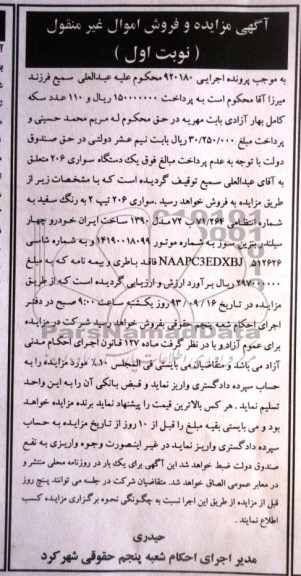 آگهی مزایده و فروش اموال غیر منقول
( نوبت اول )
به موجب پرونده اجرایی ۹۲۰۱۸۰ محکوم علیه عبدالعلی سمیع فرزند
میرزا آقا محکوم است به پرداخت ۱۵۰۰۰۰۰۰ ریال و ۱۱۰ عدد سکه
کامل بهار آزادی بابت مهریه در حق محکوم له مریم محمد حسینی و
پرداخت مبلغ ۳۰/۲۵۰/۰۰۰ ریال بابت نیم عشر دولتی در حق صندوق
دولت با توجه به عدم پرداخت مبالغ فوق یک دستگاه سواری ۲۰۶ متعلق
به آقای عبدالعلی سمیع توقیف گردیده است که با مشخصات زیر از
طریق مزایده به فروش خواهد رسید .سواری ۲۰۶ تیپ ۲ به رنگ سفید به
شماره انتظامی ۷۱/۲۶۴ ب ۷۲ مدل ۱۳۹۰ ساخت ایران خودرو چهار
سیلندر بنزین سوز به شماره موتور ۱۴۱۹۰۰۱۸۰۹۹ و به شماره شاسی
NAAPC3EDXBJ ۵۱۲۶۲۶ فاقد باطری و بیمه نامه که به مبلغ
ریال برآورد ارزش و ارزیابی گردیده است که از طریق
مزایده در تاریخ ۹۳/۰۹/۱۶ روز یکشنبه ساعت ۹:۰۰ صبح در دفتر
اجرای احکام شعبه پنجم حقوقی بفروش خواهد رسید شرکت در مزایده
برای عموم آزاد و با در نظر گرفت ماده ۱۲۷ قانون اجرای احکام مدنی
آزاد می باشد و متقاضیان می بایستی فی المجلس ۱۰٪ مورد مزایده را به
حساب سپرده دادگستری واریز نماید و قبض بانکی آن را به این واحد
تسلیم نماید . هر کس بالاترین قیمت را پیشنهاد نماید برنده مزایده خواهد
بود و می بایستی بقیه مبلغ را قبل از ۱۰ روز از تاریخ مزایده به حساب
سپرده دادگستری واریز نماید در غیر اینصورت وجوه واریزی به نفع
صندوق دولت ضبط خواهد شد این آگهی برای یک بار در روزنامه محلی منتشر و
در معابر عمومی الصاق خواهد شد. متقاضیان شرکت در جلسه می توانند پنج روز
قبل از مزایده از طریق این اجرا نسبت به چگونگی نحوه برگزاری مزایده کسب
اطلاع نمایند .
حیدری
مدیر اجرای احکام شعبه پنجم حقوقی شهر کرد
ParsNamadData